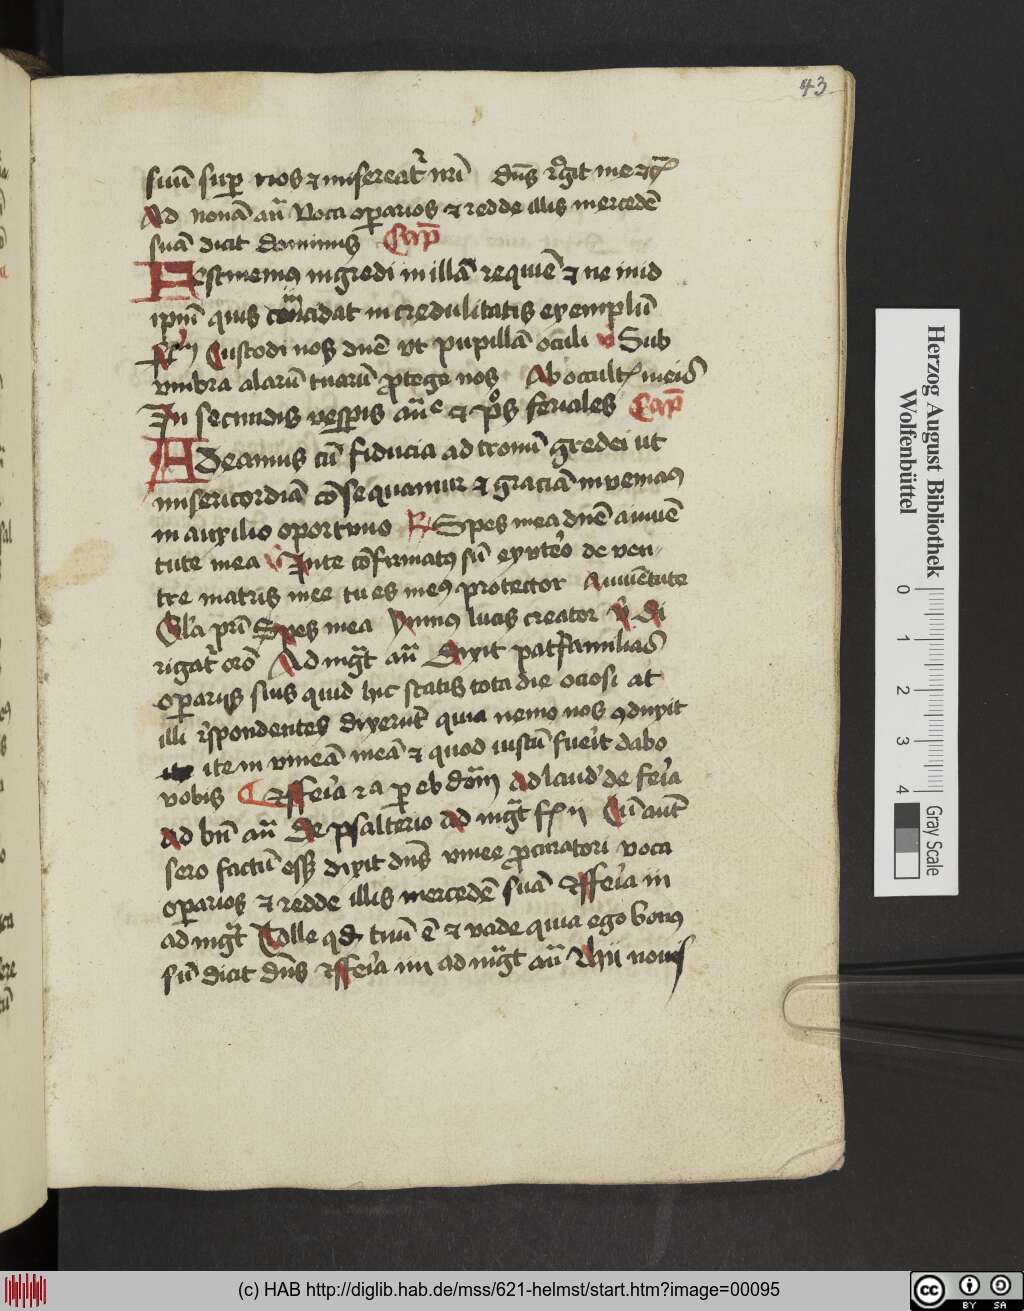 43
suū suꝑ nos ⁊ misereatᷣ nrī dn̄s rͤgit me ⁊
Ad nonā an̄ Voca oꝑarios ⁊ redde illis mercedē
suā dicit dominus Cap̄
Festinemꝰ ingredi in illā requiē ⁊ ne in id
ip̄m quis incidat in credulitatis exemplū
Custodi nos dn̄e vt pupillā oculi v Sub
vmbra alarū tuarū ꝓtege nos Ab occult meis
In secundis vesꝑis an̄e ⁊ pͦs feriales Cap̄
Adeamus cū fiducia ad tronū gredei ut
misericordiā cōsequamur ⁊ graciā inveniamꝰ
in auxilio oportuno R Spes mea dn̄e a iuuē
tute mea v In te cōfirmatꝰ sū ex vtero de ven
tre matris mee tu es meꝰ protector A iuuētute
Gl'a pr̄i Spes mea Ymnꝰ lucis creator v̄ Di
rigatᷣ orō Ad mgt̄ an̄ Dixit patᷣfamilias
oꝑariis suis quid hic statis tota die ociosi at
illi rͤspondentes dixerūt quia nemo nos ꝯduxit
ite in vineā meā ⁊ quod iustū fuerit dabo
vobis ¶ feria ꝑ ebdōm Ad laud' de feria
Ad bn̄ an̄ De psalterio Ad mgt̄ fr̄ ii Cū aut̄
sero factū essꝫ dixit dn̄s vinee ꝓcuratori voca
oꝑarios ⁊ redde illis mercedē suā feria iii
ad mgt̄ Tolle qd tuū ē ⁊ vade quia ego bonꝰ
sū dicit dn̄s feria iiii ad mgt̄ an̄ nouis
Herzog August Bibliothek
Wolfenbüttel
0 1 2 3 4
Gray Scale
(c) HAB http://diglib.hab.de/mss/621-helmst/start.htm?image=00095
cc BY SA